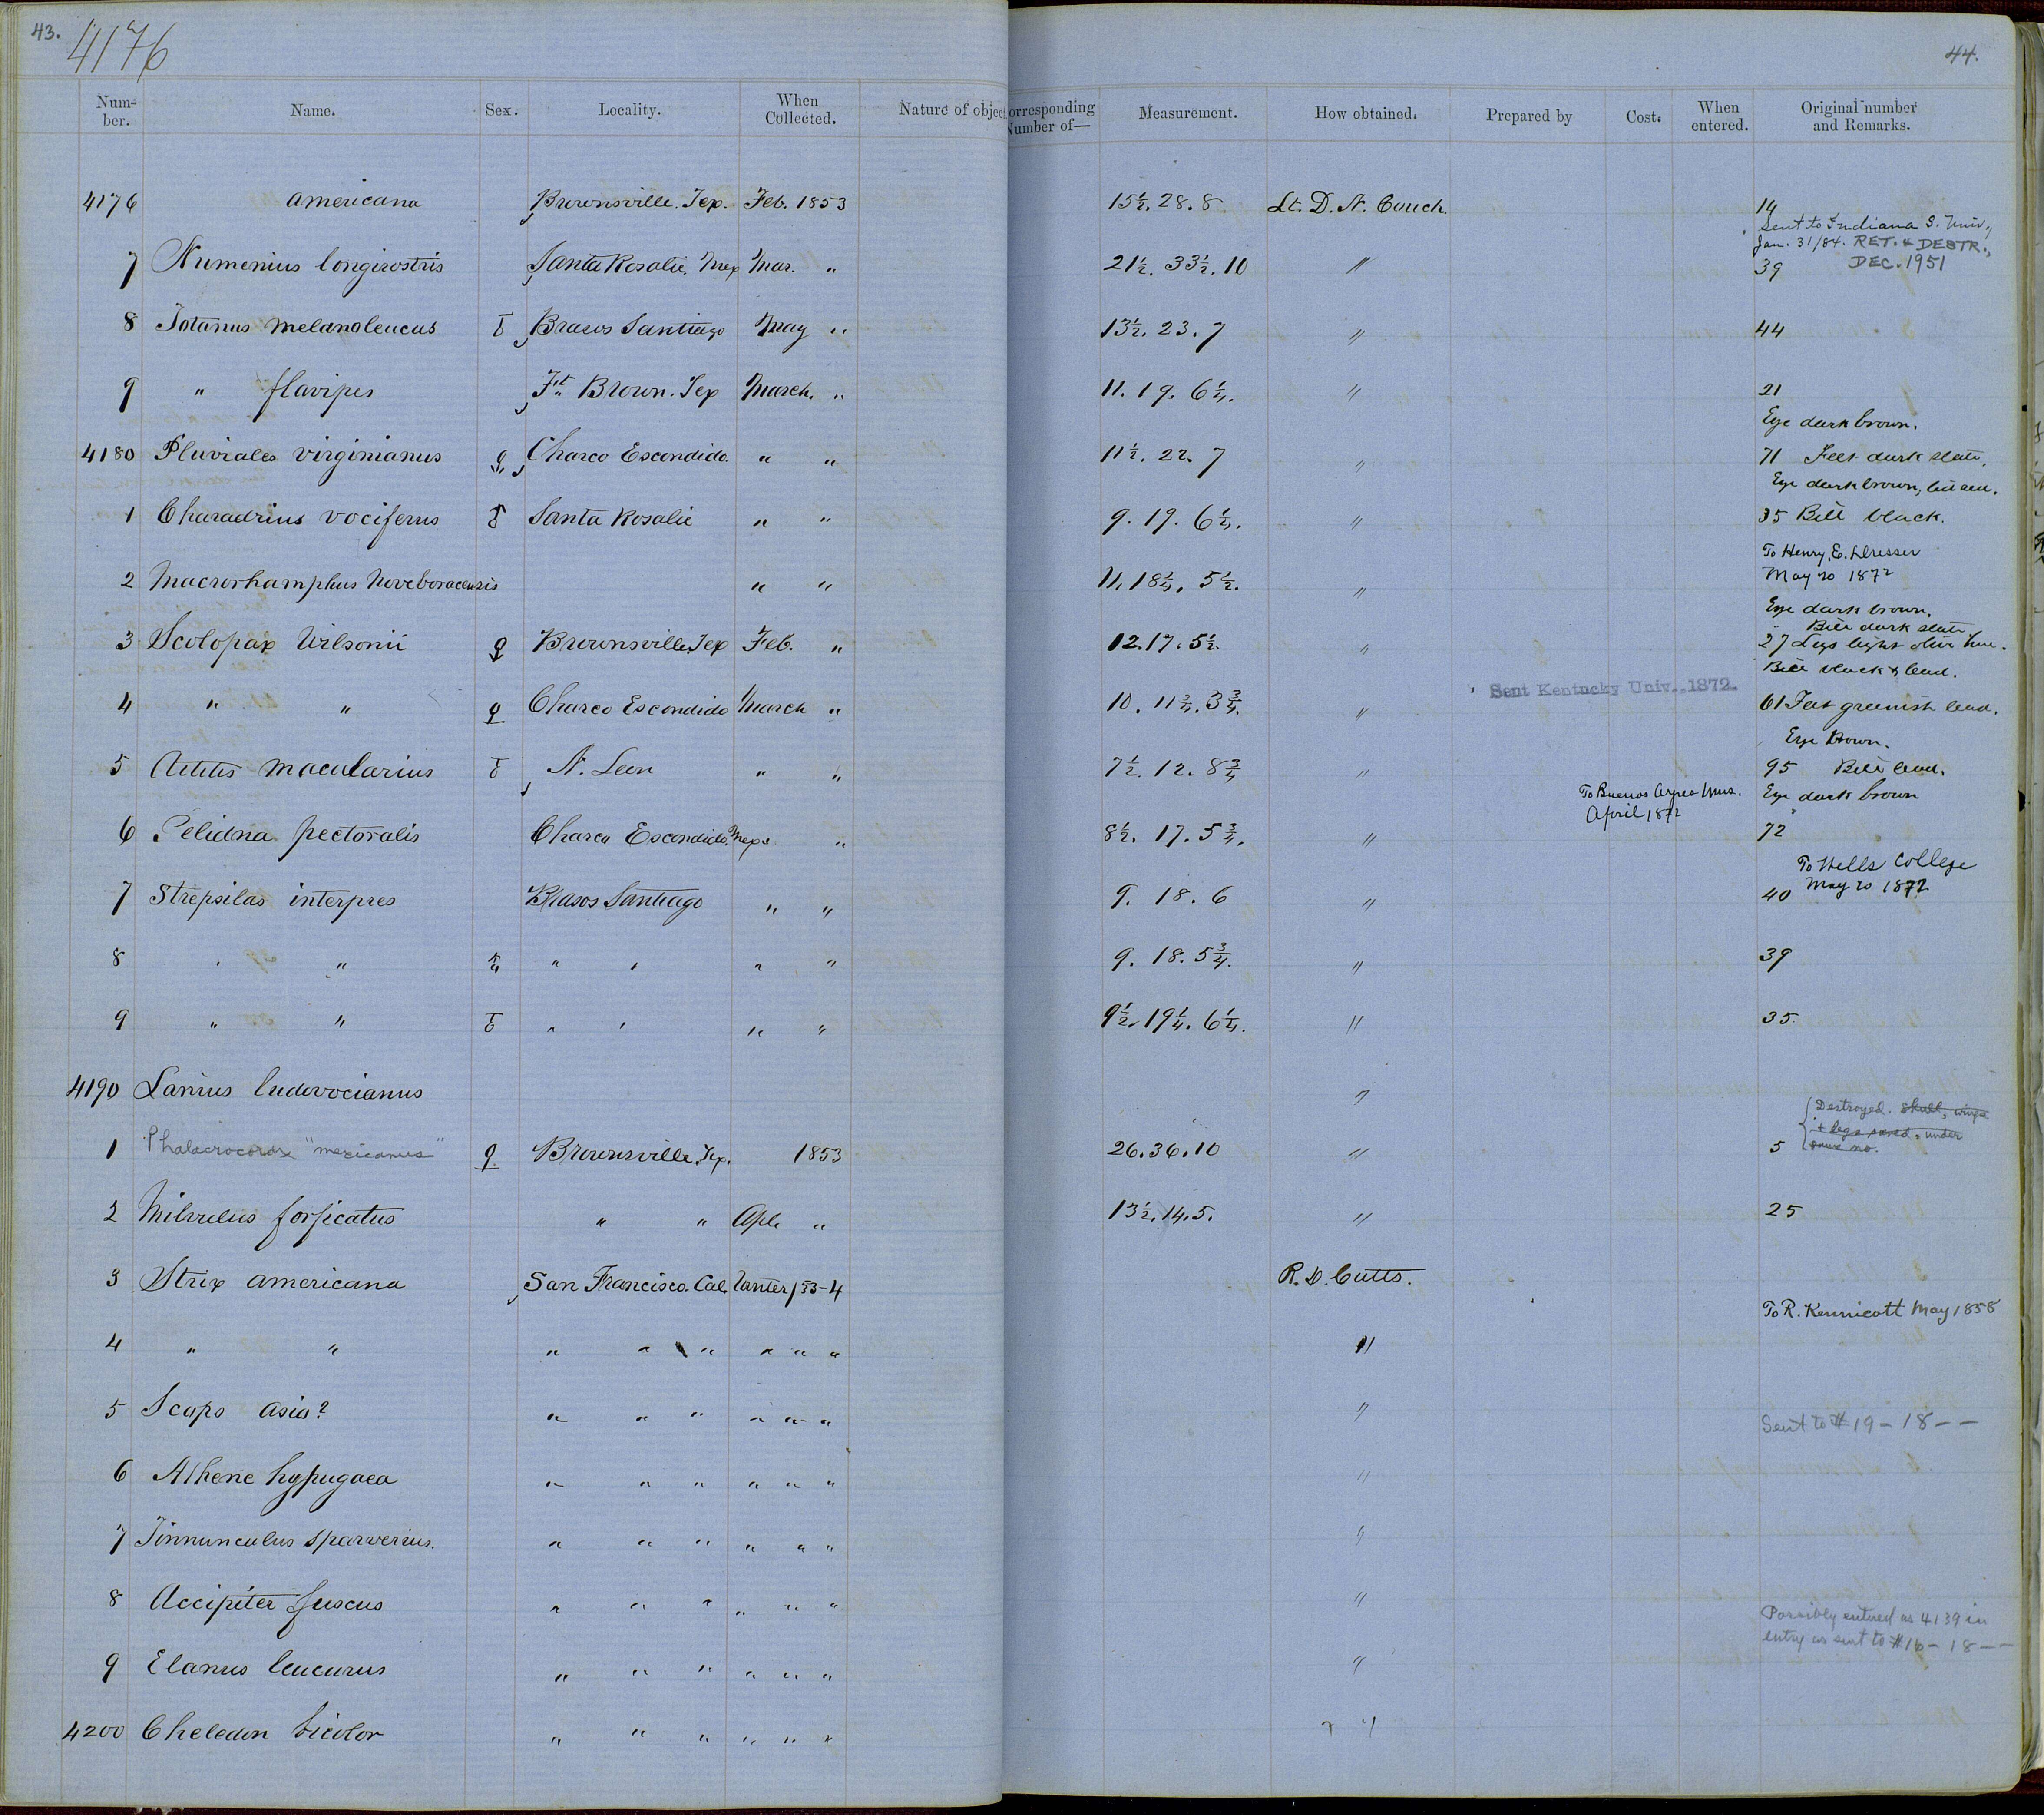 43.
4176
44.
Num-ber. Name. Sex. Locality. When Collected. Nature of object orresponding Number of— Measurement. How obtained. Prepared by Cost. When entered. Original number and Remarks.
4176 americana Brownsville. Tex. Feb. 1853 15½. 28. 8 Lt. D. N. Couch. 14
Sent to Indiana S. Univ,
Jan. 31/84. RET. & DESTR.,
DEC. 1951
7 Numenius longirostris Santa Rosalie. Mex Mar. " 21½. 33½. 10 " 39
8 Totanus melanoleucus ♂ Brasos Santiago May " 13½. 23. 7 " 44
9 " flavipes Ft. Brown. Tex March. " 11. 19. 6¼. " 21
Eye dark brown.
4180 Pluviales virginianus ♀ Charco Escondido. " " 11½. 22. 7 " 71 Feet dark slate,
Eye dark brown,
1 Charadrius vociferus ♂ Santa Rosalie " " 9. 19. 6¼. " 35 Bill black.
To Henry. E. Dresser
May 20 1872
2 Macrorhamphus Noveboracensis " " 11. 18¼. 5½. "
Eye dark brown.
" Bill dark slate
3 Scolopax Wilsonii ♀ Brownsville. Tex Feb. " 12. 17. 5½. " 27 Legs light olive
Bill black & lead.
Sent Kentucky Univ. 1872.
4 " " ♀ Charco Escondido March " 10. 11¾. 3¾. " 61 Feet greenish lead.
Eye Brown.
5 Actitis macularius ♂ N. Leon " " 7½. 12. 8¾ " 95 Bill lead.
To Buenos Ayres Mus.
April 1872
Eye dark brown
6 Pelidna pectoralis Charco Escondido. Mex. " 8½. 17. 5¾. " 72
To Wells College
May 20 1872
7 Strepsilas interpres Brasos Santiago " " 9. 18. 6 " 40
8 " " " " " " 9. 18. 5¾. " 39
9 " " ♂ " " " " 9½. 19¼. 6¼. " 35.
4190 Lanius ludovocianus "
Destroyed. skull, wings
+ legs saved, under
same no.
1 Phalacrocorax "mexicanus" ♀ Brownsville. Tex. 1853 26. 36. 10 " 5
2 Milvulus forficatus " " Apl. " 13½. 14. 5. " 25
3 Strix americana San Francisco. Cal. Winter /53-4 R. D. Cutts.
To R. Kennicott May 1858
4 " " " " " " " " "
5 Scops asio? " " " " " " "
Sent to #19 - 18 - -
6 Athene hypugaea " " " " " " "
7 Tinnunculus sparverius. " " " " " " "
8 Accipiter fuscus " " " " " " "
Possibly entered as 4139 in
entry as sent to #16 - 18 - -
9 Elanus leucurus " " " " " " "
4200 Cheledon bicolor " " " " " " " "